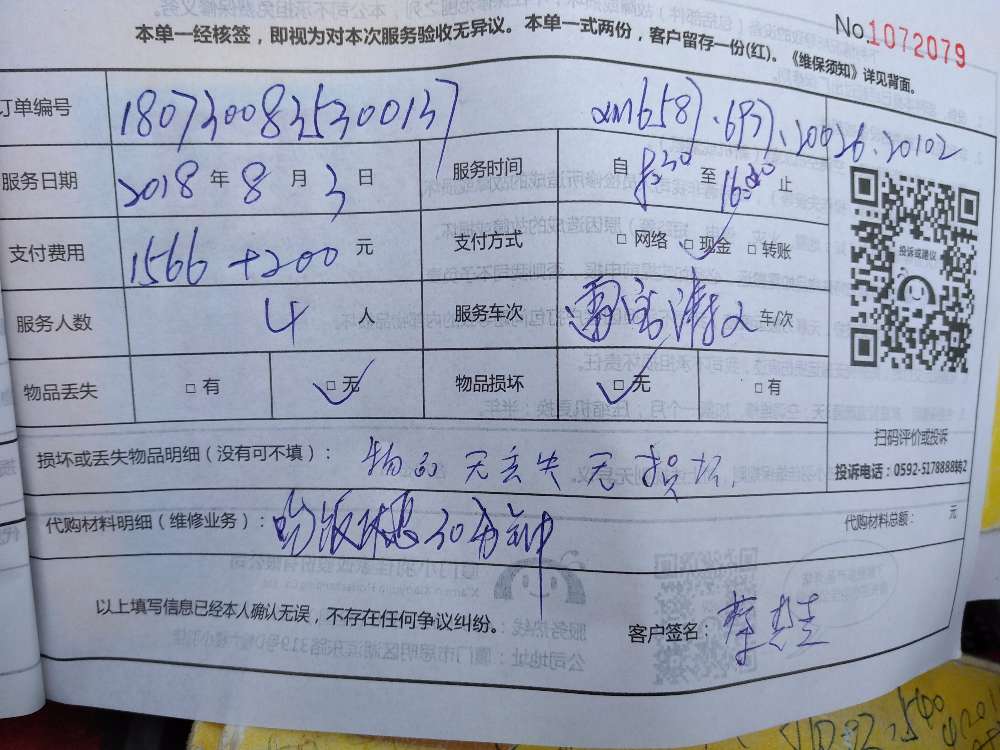 本单一经核签，即视为对本次服务验收无异议。本单一式两份，客户留存一份(红)。《维保须知》详见背面。
No.1072079
订单编号 1807300835300137 xm6587.6937.20026.20102
服务日期 2018 年 8 月 3 日 服务时间 自 8:30 至 16:00 止
支付费用 1566+200 元 支付方式 □ 网络 □ 现金 □ 转账
服务人数 4 人 服务车次 车/次
物品丢失 □ 有 □ 无 物品损坏 □ 无 □ 有
投诉或建议
扫码评价或投诉
投诉电话：0592-5178888转2
损坏或丢失物品明细（没有可不填）： 物品无丢失无损坏.
代购材料明细（维修业务）： 吃饭休息30分钟 代购材料总额： 元
以上填写信息已经本人确认无误，不存在任何争议纠纷。 客户签名：